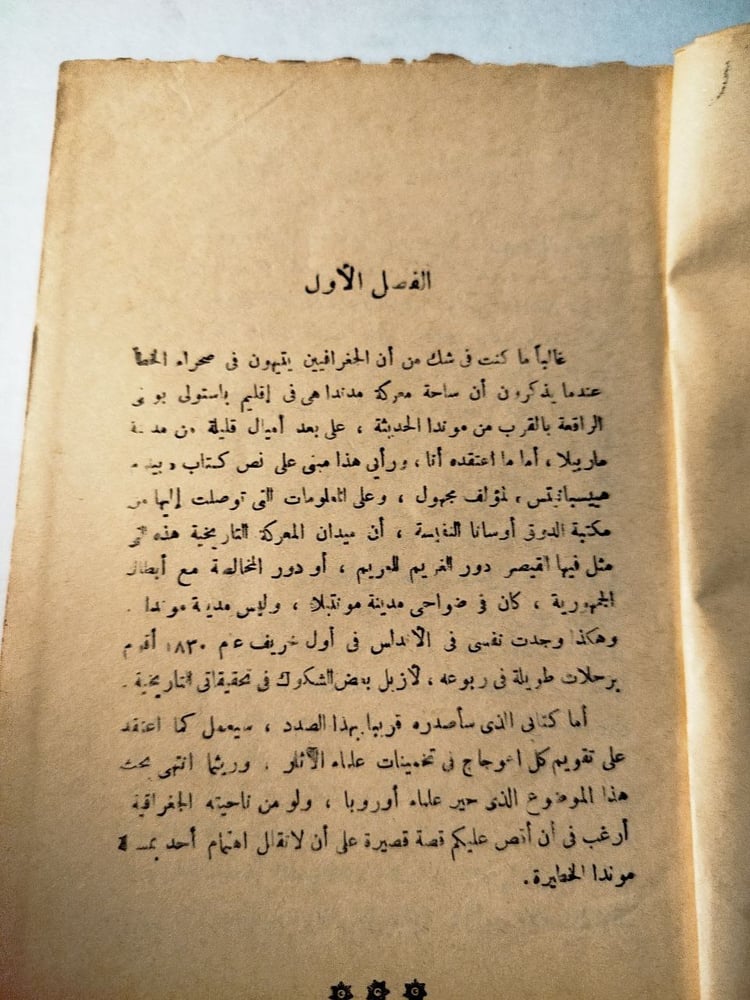 الفصل الأول
غالباً ما كنت فى شك من أن الجغرافيين يتيهون فى صحراء الخطأ
عندما يذكرون أن ساحة معركة مندا هى فى إقليم باستولى بونى
الواقعة بالقرب من موندا الحديثة ، على بعد أميال قليلة من مدينة
ماربيلا ، أما ما اعتقده أنا ، ورأيى هذا مبنى على نص كتاب
، لمؤلف مجهول ، وعلى المعلومات التى توصلت إليها من
مكتبة الدوق أوسانا النفيسة ، أن ميدان المعركة التاريخية هذه التى
مثل فيها القيصر دور الغريم للغريم ، أو دور المخالصة مع أبطال
الجمهورية ، كان فى ضواحى مدينة مونتيلا ، وليس مدينة موندا .
وهكذا وجدت نفسى فى الأندلس فى أول خريف عام ١٨٣٠ أقوم
برحلات طويلة فى ربوعه ، لأزيل بعض الشكوك فى تحقيقاتى التاريخية .
أما كتابى الذى سأصدره قريبا بهذا الصدد ، سيعمل كما اعتقد
على تقويم كل اعوجاج فى تخمينات علماء الآثار . وريثما انتهى بحث
هذا الموضوع الذى حير علماء أوروبا ، ولو من ناحيته الجغرافية
أرغب فى أن أقص عليكم قصة قصيرة على أن لا تقلل اهتمام أحد
موندا الخطيرة .